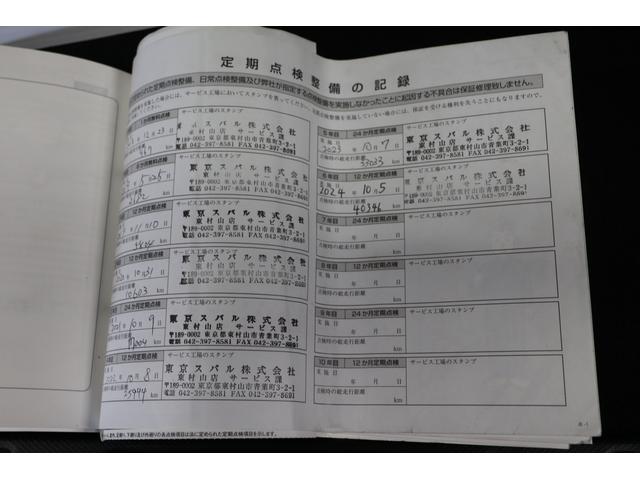 定期点検整備の記録
られた定期点検整備、日常点検整備及び弊社が指定する点検整備を実施しなかったことに起因する不具合は保証修理致しません。
サービス工場のスタンプ
12月23日
スバル株式会社
東村山店 サービス課
〒189-0002 東京都東村山市青葉町3-2-1
電話 042-397-8581 FAX 042-397-8691
6か月定期点検
サービス工場のスタンプ
東京スバル株式会社
東村山店 サービス課
〒189-0002 東京都東村山市青葉町3-2-1
電話 042-397-8581 FAX 042-397-8691
12か月定期点検
サービス工場のスタンプ
東京スバル株式会社
東村山店 サービス課
〒189-0002 東京都東村山市青葉町3-2-1
電話 042-397-8581 FAX 042-397-8691
12か月定期点検
サービス工場のスタンプ
10月31
10603 km
東京スバル株式会社
東村山店 サービス課
〒189-0002 東京都東村山市青葉町3-2-1
電話 042-397-8581 FAX 042-397-8691
24か月定期点検
サービス工場のスタンプ
年10月9日
東京スバル株式会社
東村山店 サービス課
〒189-0002 東京都東村山市青葉町3-2-1
電話 042-397-8581 FAX 042-397-8691
12か月定期点検
サービス工場のスタンプ
年10月8日
25944 km
東京スバル株式会社
東村山店 サービス課
〒189-0002 東京都東村山市青葉町3-2-1
電話 042-397-8581 FAX 042-397-8691
5年目 24か月定期点検
サービス工場のスタンプ
実施日
2023年10月7日
点検時の総走行距離
33033 km
東京スバル株式会社
東村山店 サービス課
〒189-0002 東京都東村山市青葉町3-2-1
電話 042-397-8581 FAX 042-397-8691
6年目 12か月定期点検
サービス工場のスタンプ
実施日
2024年10月5日
点検時の総走行距離
40346 km
東京スバル株式会社
東村山店 サービス課
〒189-0002 東京都東村山市青葉町3-2-1
電話 042-397-8581 FAX 042-397-8691
7年目 24か月定期点検
サービス工場のスタンプ
実施日
年 月 日
点検時の総走行距離
km
8年目 12か月定期点検
サービス工場のスタンプ
実施日
年 月 日
点検時の総走行距離
km
9年目 24か月定期点検
サービス工場のスタンプ
実施日
年 月 日
点検時の総走行距離
km
10年目 12か月定期点検
サービス工場のスタンプ
実施日
年 月 日
点検時の総走行距離
km